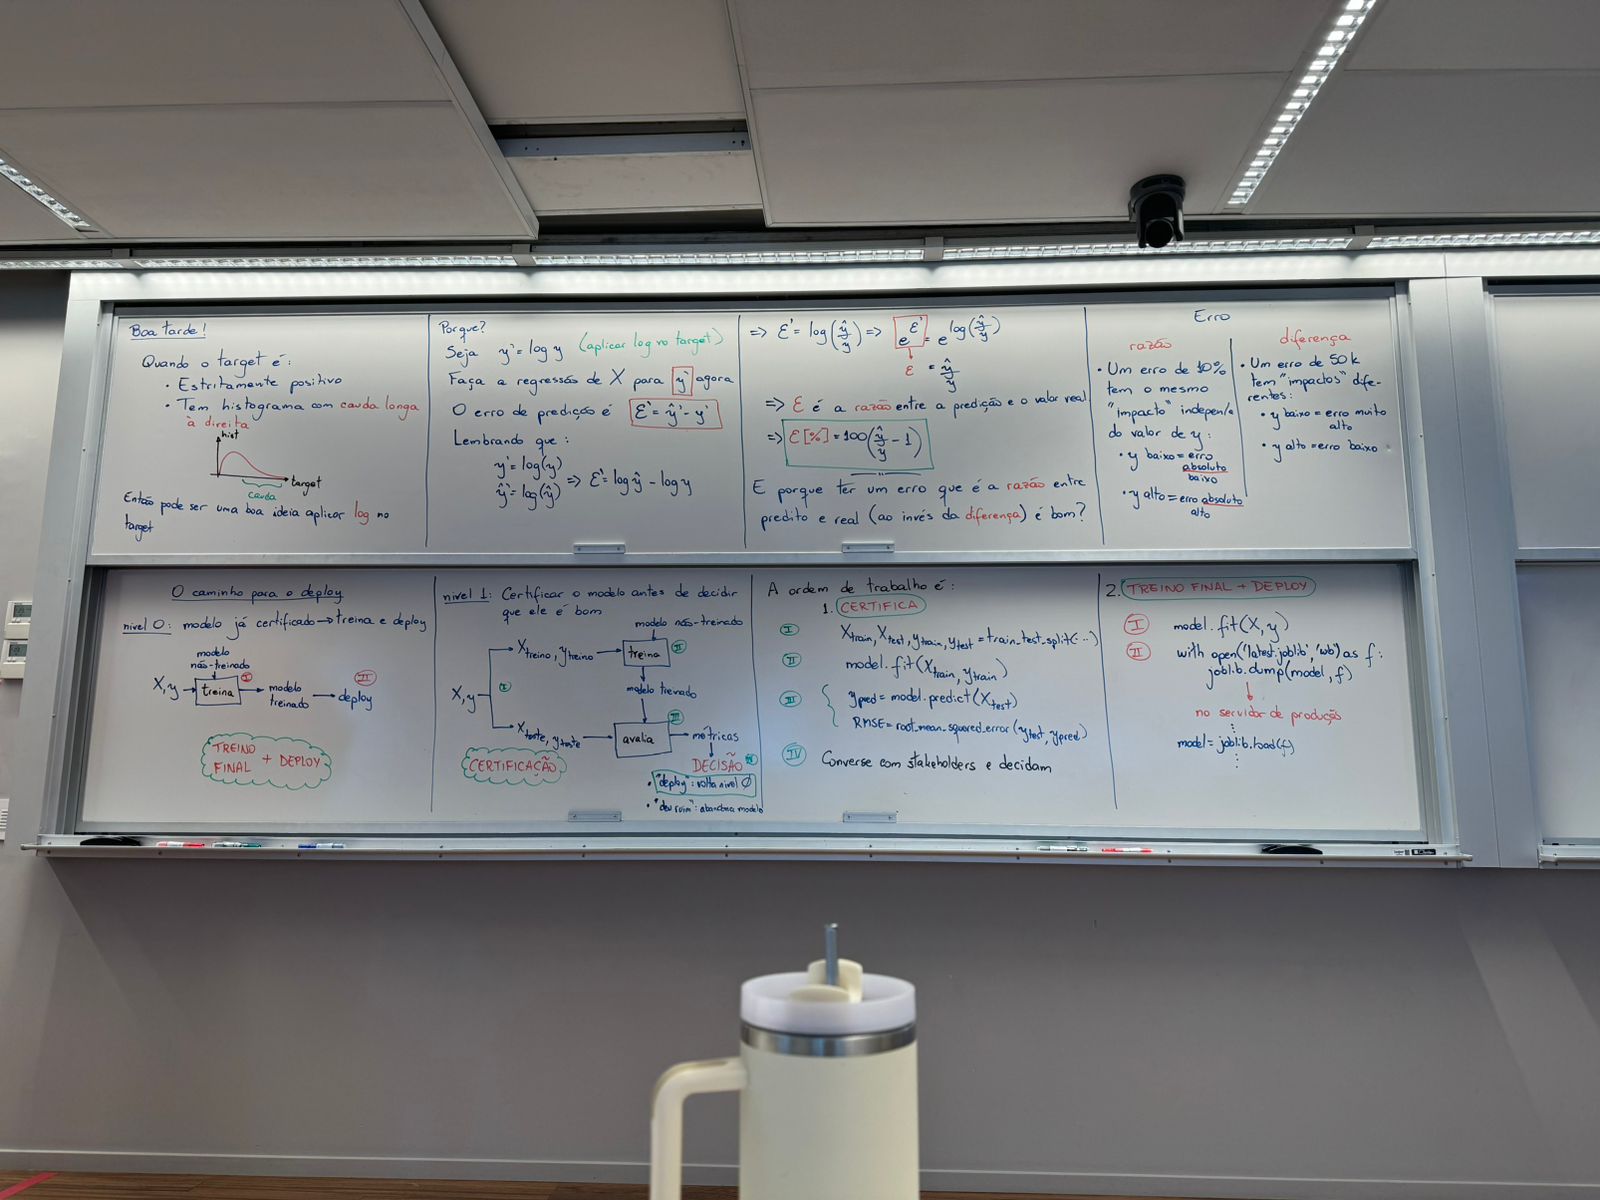 Boa tarde!
Quando o target é:
• Estritamente positivo
• Tem histograma com cauda longa
à direita
hist
target
cauda
Então pode ser uma boa ideia aplicar log no
target
Porque?
Seja y' = log y (aplicar log no target)
Faça a regressão de X para y' agora
O erro de predição é ε' = ŷ' - y'
Lembrando que:
y' = log(y)
ŷ' = log(ŷ) => ε' = log ŷ - log y
=> ε' = log(ŷ/y) => e^ε' = e^log(ŷ/y)
ε = ŷ/y
=> ε é a razão entre a predição e o valor real
=> ε[%] = 100(ŷ/y - 1)
E porque ter um erro que é a razão entre
predito e real (ao invés da diferença) é bom?
Erro
razão
• Um erro de 10%
tem o mesmo
"impacto" independ/e
do valor de y:
• y baixo = erro
absoluto
baixo
• y alto = erro absoluto
alto
diferença
• Um erro de 50k
tem "impactos" dife-
rentes:
• y baixo = erro muito
alto
• y alto = erro baixo
O caminho para o deploy
nível 0: modelo já certificado → treina e deploy
modelo
não-treinado
X, y → treina → modelo
treinado → deploy
I
II
TREINO
FINAL + DEPLOY
nível 1: Certificar o modelo antes de decidir
que ele é bom
modelo não-treinado
X treino, y treino → treina
II
X, y
I
modelo treinado
III
X teste, y teste → avalia → métricas
CERTIFICAÇÃO
DECISÃO IV
• "deploy": volta nível 0
• "deu ruim": abandona modelo
A ordem de trabalho é:
1. CERTIFICA
I Xtrain, Xtest, ytrain, ytest = train_test_split(...)
II model.fit(Xtrain, ytrain)
III ypred = model.predict(Xtest)
RMSE = root_mean_squared_error(ytest, ypred)
IV Converse com stakeholders e decidam
2. TREINO FINAL + DEPLOY
I model.fit(X, y)
II with open('latest.joblib', 'wb') as f:
joblib.dump(model, f)
no servidor de produção
model = joblib.load(f)